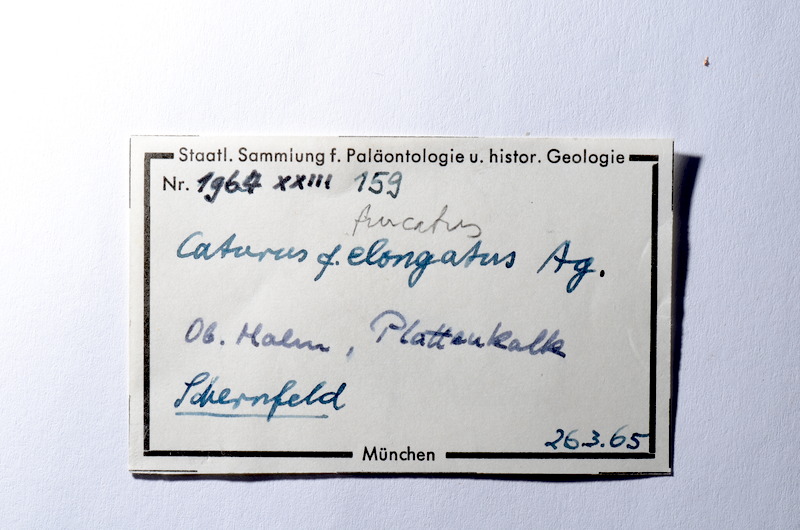 Staatl. Sammlung f. Paläontologie u. histor. Geologie
Nr. 1964 XXIII 159
furcatus
Caturus f. elongatus Ag.
Ob. Malm, Plattenkalk
Schernfeld
26.3.65
München